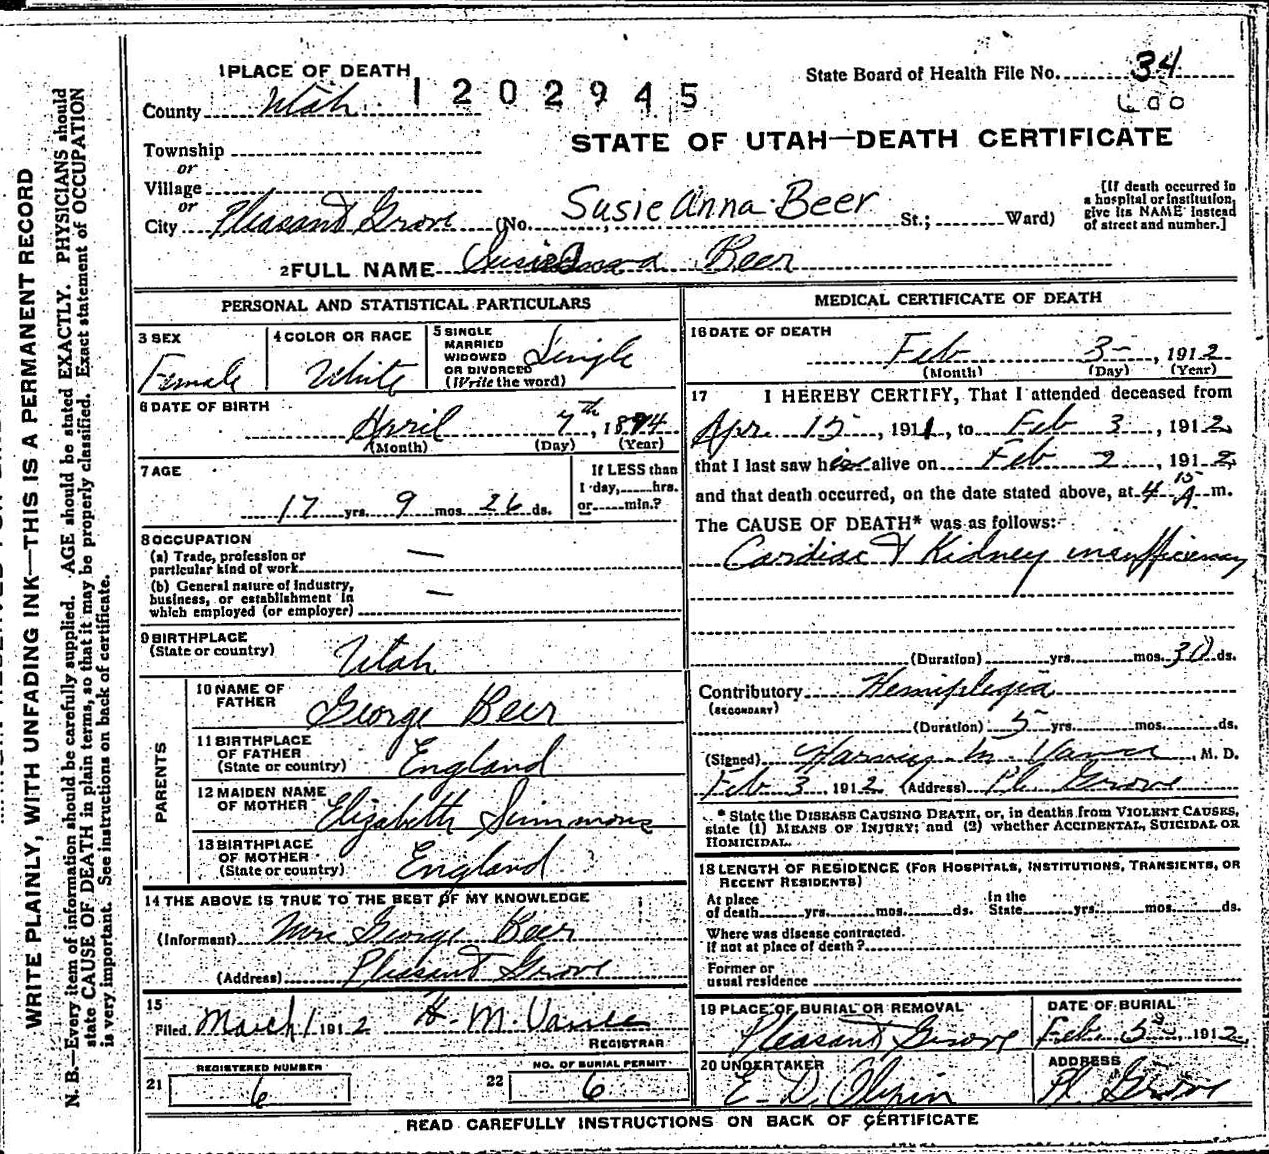 1 PLACE OF DEATH
State Board of Health File No. 34
County Utah 1202945
600
STATE OF UTAH—DEATH CERTIFICATE
Township
or
Village
or
City Pleasant Grove (No. Susie Anna Beer St.; Ward)
[If death occurred in a hospital or institution, give its NAME instead of street and number.]
2 FULL NAME Susie Beer
WRITE PLAINLY, WITH UNFADING INK—THIS IS A PERMANENT RECORD
N. B.—Every item of information should be carefully supplied. AGE should be stated EXACTLY. PHYSICIANS should
state CAUSE OF DEATH in plain terms, so that it may be properly classified. Exact statement of OCCUPATION
is very important. See instructions on back of certificate.
PERSONAL AND STATISTICAL PARTICULARS
3 SEX
Female
4 COLOR OR RACE
White
5 SINGLE
MARRIED
WIDOWED
OR DIVORCED
(Write the word)
Single
6 DATE OF BIRTH
April 7th, 1894
(Month) (Day) (Year)
7 AGE
17 yrs. 9 mos. 26 ds.
If LESS than
1 day, hrs.
or min.?
8 OCCUPATION
(a) Trade, profession or
particular kind of work —
(b) General nature of industry,
business, or establishment in
which employed (or employer) —
9 BIRTHPLACE
(State or country)
Utah
PARENTS
10 NAME OF
FATHER
George Beer
11 BIRTHPLACE
OF FATHER
(State or country)
England
12 MAIDEN NAME
OF MOTHER
Elizabeth Simmons
13 BIRTHPLACE
OF MOTHER
(State or country)
England
14 THE ABOVE IS TRUE TO THE BEST OF MY KNOWLEDGE
(Informant) Mrs George Beer
(Address) Pleasant Grove
15
Filed March 1 1912 H. M. Vance
REGISTRAR
21 REGISTERED NUMBER
6
22 NO. OF BURIAL PERMIT
6
MEDICAL CERTIFICATE OF DEATH
16 DATE OF DEATH
Feb 3-, 1912
(Month) (Day) (Year)
17 I HEREBY CERTIFY, That I attended deceased from
Apr 15, 1911, to Feb 3, 1912,
that I last saw her alive on Feb 2, 1912,
and that death occurred, on the date stated above, at 4 15 A. m.
The CAUSE OF DEATH* was as follows:
Cardiac & Kidney insufficiency
(Duration) yrs. mos. 30 ds.
Contributory Hemiplegia
(SECONDARY)
(Duration) 5 yrs. mos. ds.
(Signed) M. Vance, M. D.
Feb 3 1912 (Address) Pl. Grove
* State the DISEASE CAUSING DEATH, or, in deaths from VIOLENT CAUSES,
state (1) MEANS OF INJURY; and (2) whether ACCIDENTAL, SUICIDAL OR
HOMICIDAL.
18 LENGTH OF RESIDENCE (FOR HOSPITALS, INSTITUTIONS, TRANSIENTS, OR
RECENT RESIDENTS)
At place
of death yrs. mos. ds.
In the
State yrs. mos. ds.
Where was disease contracted,
if not at place of death?
Former or
usual residence
19 PLACE OF BURIAL OR REMOVAL
Pleasant Grove
DATE OF BURIAL
Feb 5, 1912
20 UNDERTAKER
E. D. Olpin
ADDRESS
Pl. Grove
READ CAREFULLY INSTRUCTIONS ON BACK OF CERTIFICATE